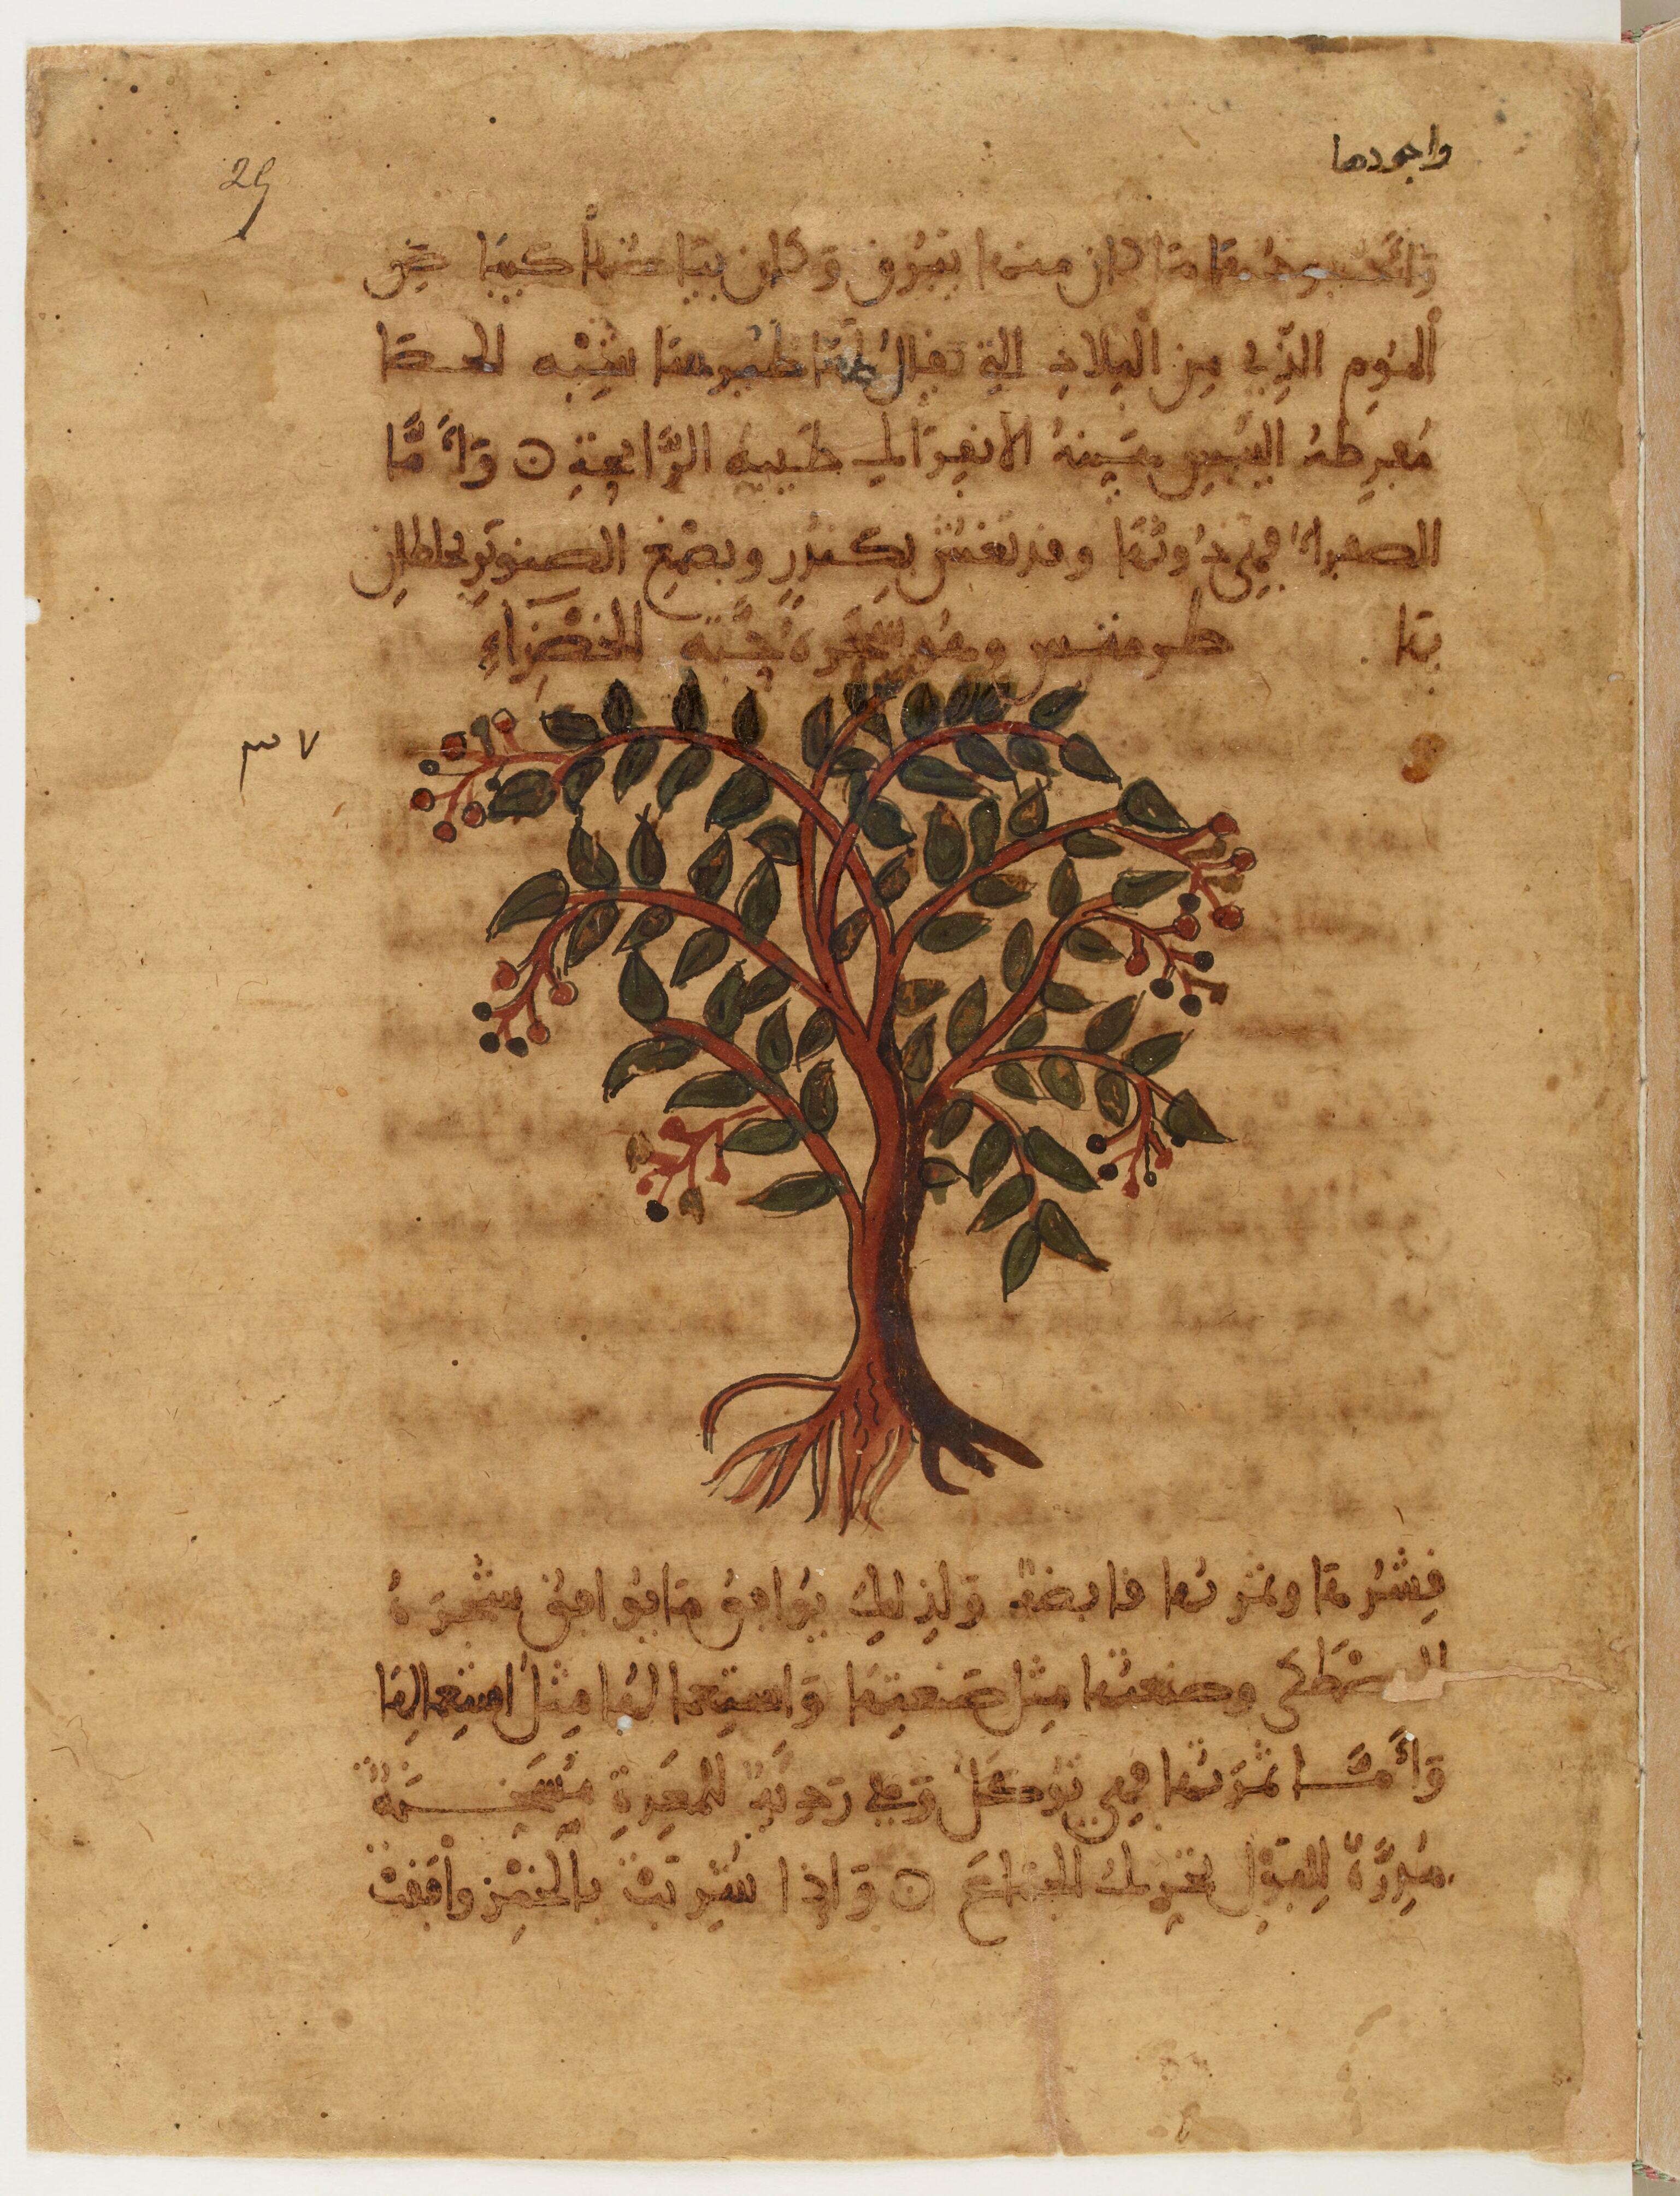 واجودها
29
ما كان منها يبرق وكان بياضها كبياض
الموم الذي من البلاد التي يقال لها شبه المصطكا
مفرطة اليبس هينة الانفراك طيبة الرائحة ۞ وَأَمَّا
الصفراء فهي دونها وقد تغش بكندر وبصمغ الصنوبر يخلطان
بها طرمنتس وهو شجرة حبة الخضراء
٣٧
قشرها وثمرتها قابضة ولذلك يوافق ما يوافق شجرة
المصطكى وصنعتها مثل صنعتها واستعمالها مثل استعمالها
وَأَمَّا ثمرتها فهي تؤكل وهي ردية للمعدة مسخنة
مدرة للبول تحرك الجماع ۞ وَاذا شربت بالخمر وافقت